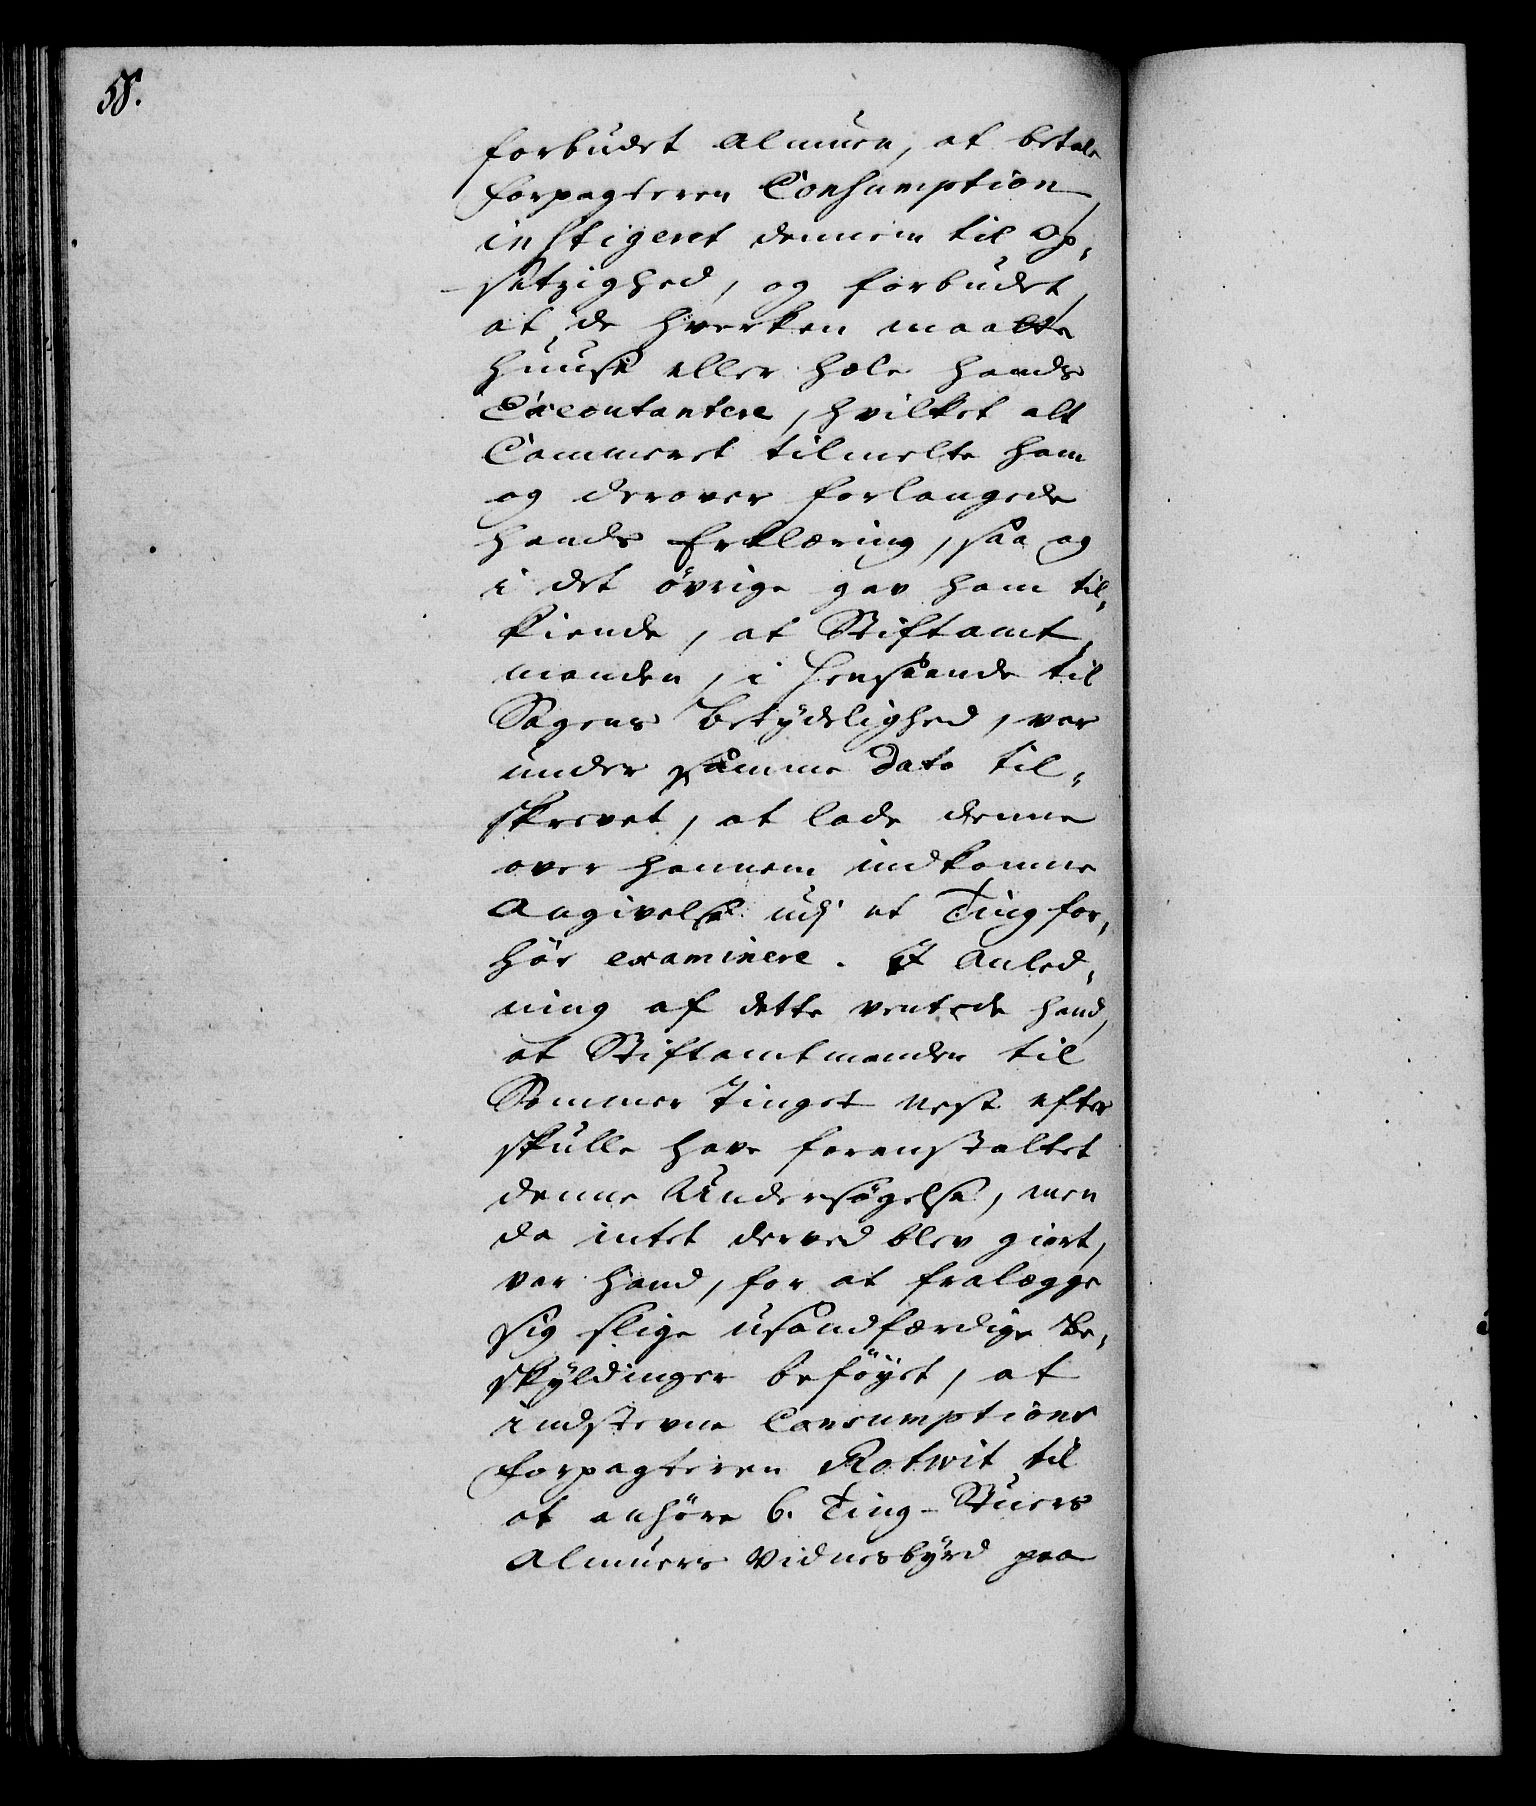 58.
forbudet Almuen, at betale
Forpagteren Consumption,
instigeret dennem til Op-
sætzighed, og forbudet,
at de hverken maatte
huuse eller hæle hands
Executantere, hvilket alt
Cammeret tilmelte ham
og derover forlangede
hands Erklæring, saa og
i det övrige gav ham til-
kiende, at Stiftamt-
manden, i Henseende til
Sagens Betydelighed, var
under samme Dato til-
skrevet, at lade denne
over hannem indkomne
Angivelse udj et Tingfor-
hör examinere. I Anled-
ning af dette ventede hand,
at Stiftamtmanden til
Sommer Tinget nest efter
skulle have foranstaltet
denne Undersögelse, men
da intet derved blev giort,
var hand, for at fralægge
sig slige usandfærdige Be-
skyldinger beföyet, at
indstevne Consumptions
Forpagteren Rotwit til
at anhöre 6. Ting-Stuers
Almuers Vidnesbyrd paa